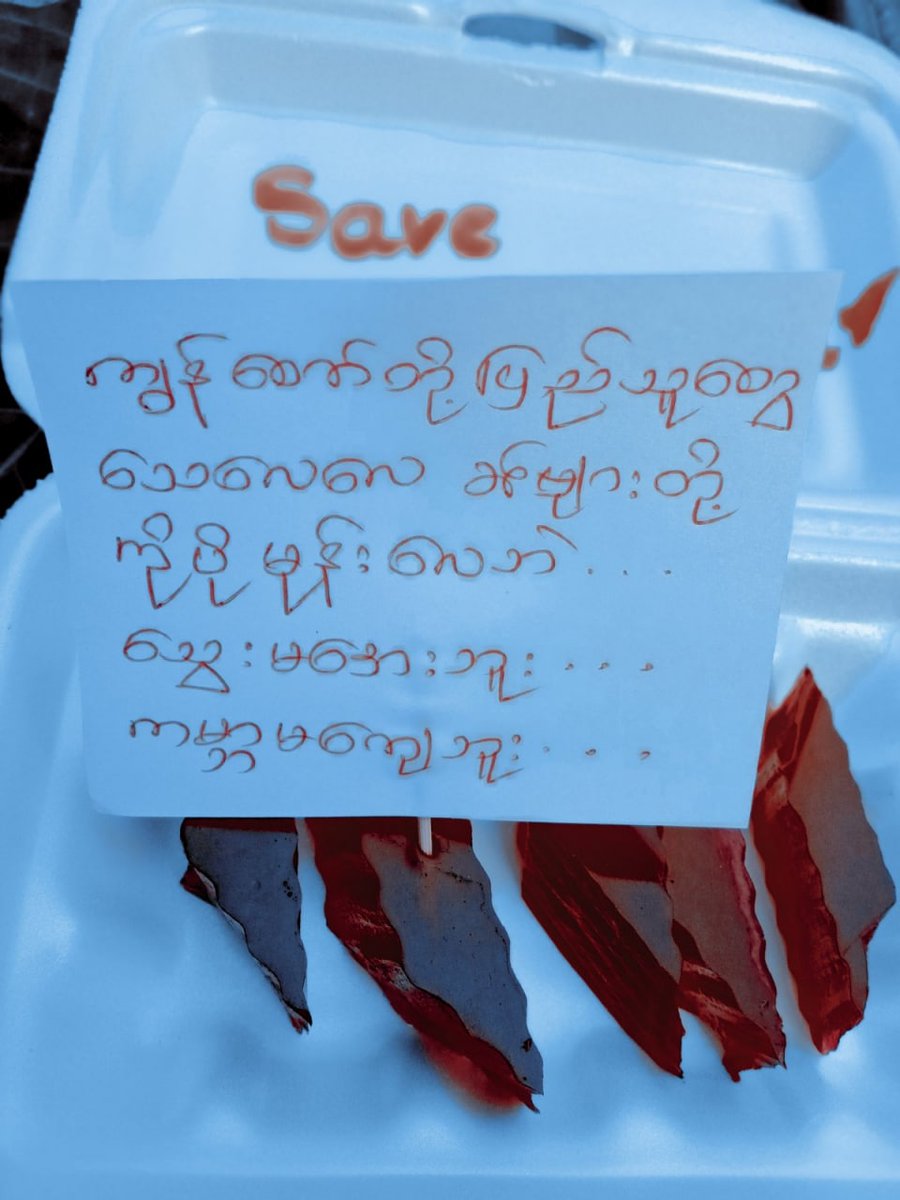 Save
ကျွန်တော်တို့ ပြည်သူတွေ
သေလေလေ ခင်ဗျားတို့
ကိုပို မုန်းလေဘဲ . . .
သွေးမအေးဘူး . . .
ကမ္ဘာမကျေဘူး . . .